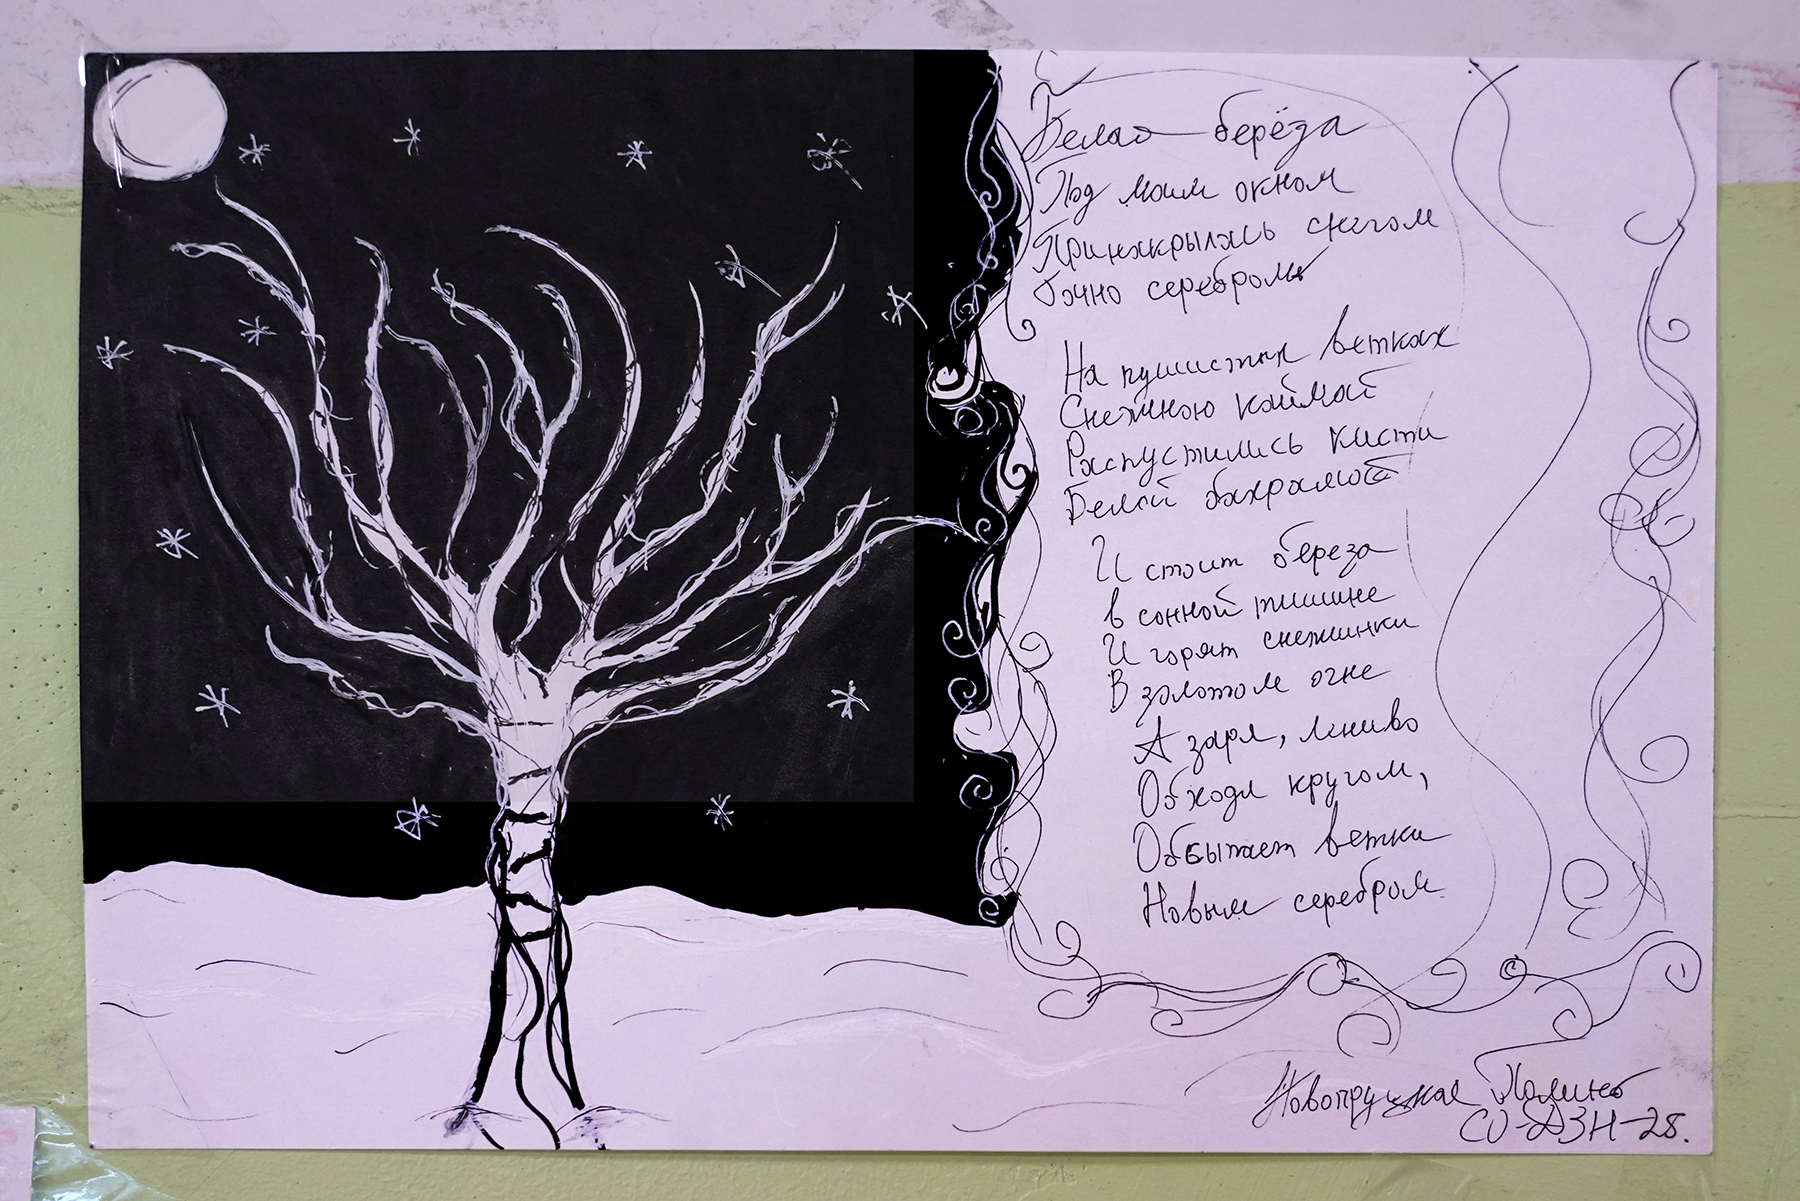 Белая берёза
Под моим окном
Принакрылась снегом
Точно серебром
На пушистых ветках
Снежною каймой
Распустились кисти
Белой бахромой
И стоит береза
в сонной тишине
И горят снежинки
В золотом огне
А заря, лениво
Обходя кругом,
Обсыпает ветки
Новым серебром.
Полина
СО-ДЗН-28.